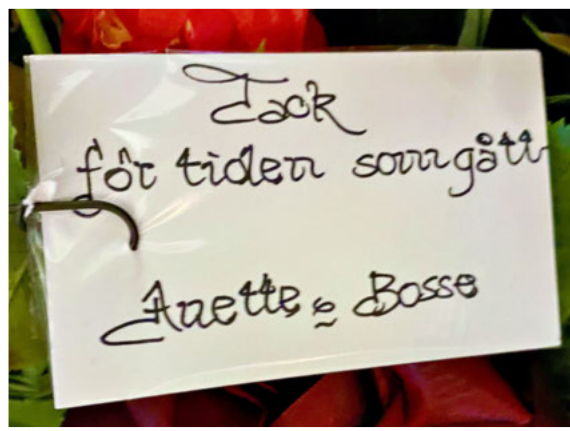 Tack
för tiden som gått
Anette & Bosse